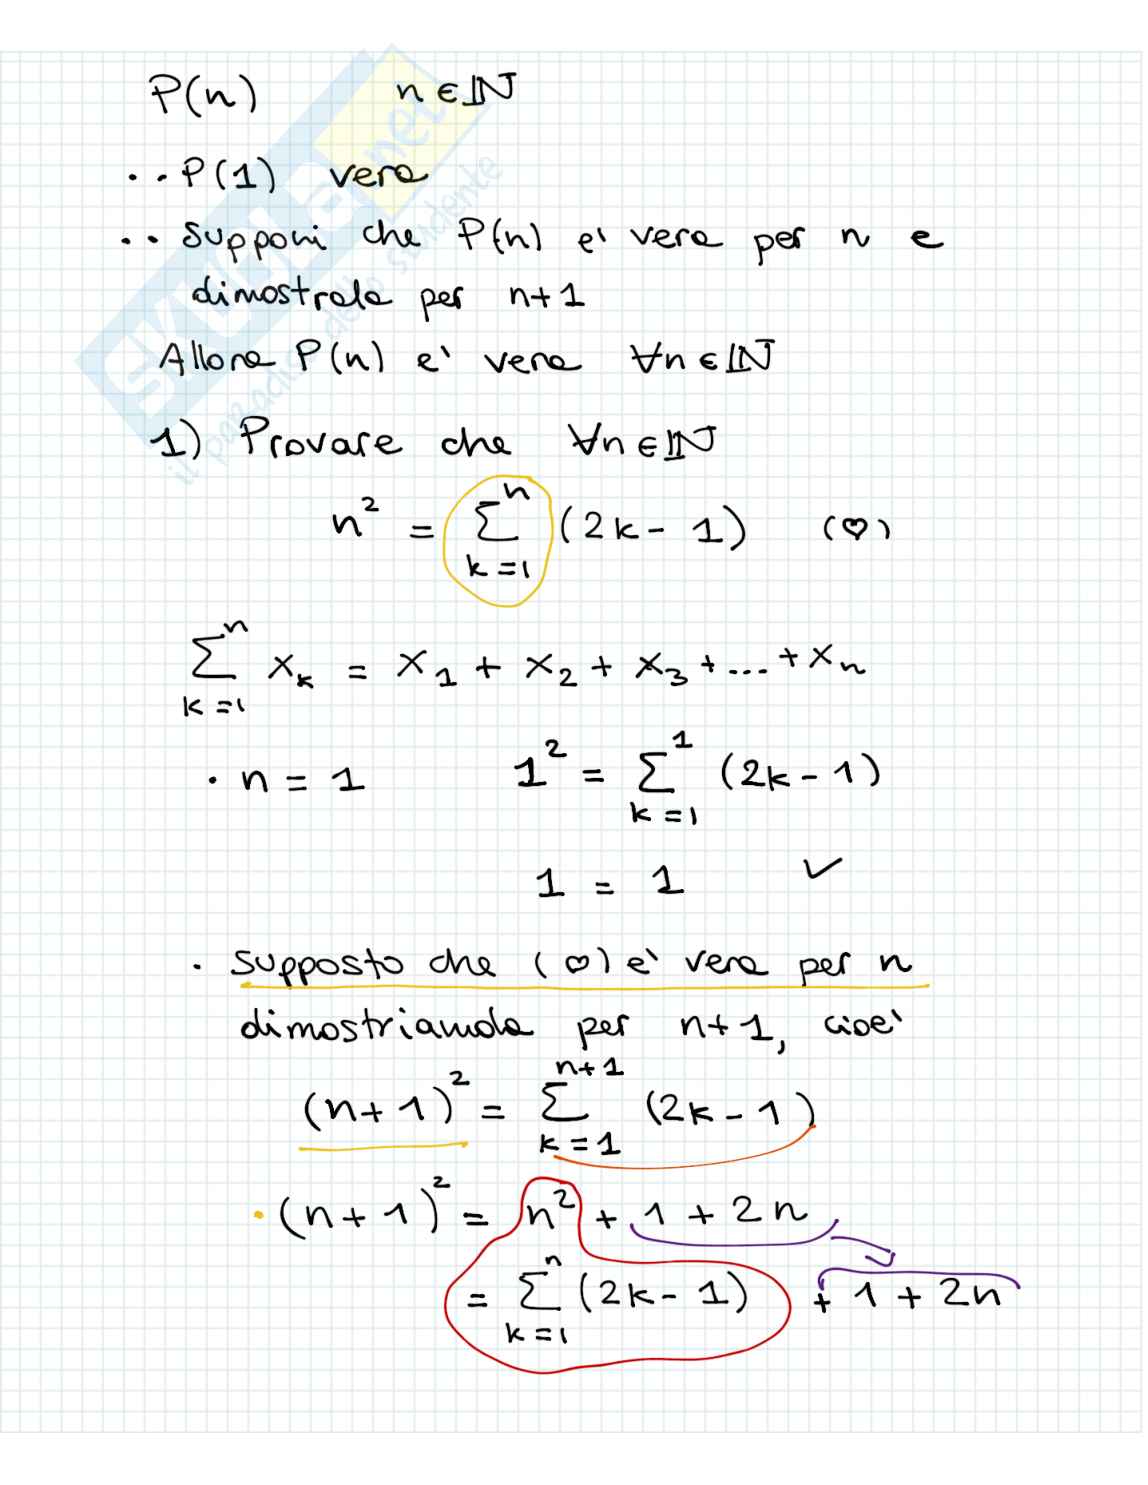 P(n) n ∈ ℕ
·· P(1) vera
·· supponi che P(n) e' vera per n e
dimostrala per n+1
Allora P(n) e' vera ∀n ∈ ℕ
1) Provare che ∀n ∈ ℕ
n² = ∑_{k=1}^{n} (2k - 1) (♡)
∑_{k=1}^{n} x_k = x_1 + x_2 + x_3 + ... + x_n
· n = 1 1² = ∑_{k=1}^{1} (2k - 1)
1 = 1 ✓
· supposto che (♡) e' vera per n
dimostriamola per n+1, cioe'
(n+1)² = ∑_{k=1}^{n+1} (2k - 1)
· (n+1)² = n² + 1 + 2n
= ∑_{k=1}^{n} (2k - 1) + 1 + 2n
SKUOLA.net
il paradiso dello studente